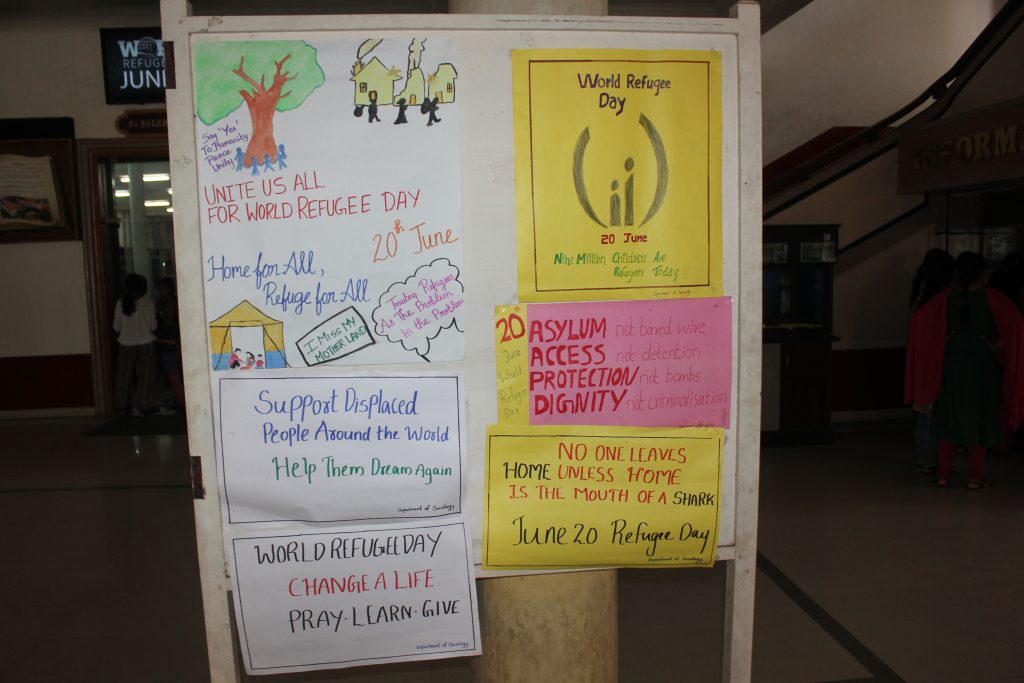 REFUGEE
JUNE
Say 'Yes'
To Humanity
Peace
Unity
UNITE US ALL
FOR WORLD REFUGEE DAY
20th June
Home for All,
Refuge for All
I MISS MY
MOTHER LAND
Treating Refugees
As The Problem
is the Problem
Support Displaced
People Around the World
Help Them Dream Again
Department of Sociology
WORLD REFUGEE DAY
CHANGE A LIFE
PRAY·LEARN·GIVE
Department of Sociology
World Refugee
Day
20 June
Nine Million Children Are
Refugees Today!!
Department of Sociology
20
June
World
Refugee
Day
ASYLUM not bared wire
ACCESS not detention
PROTECTION not bombs
DIGNITY not criminalisation
NO ONE LEAVES
HOME UNLESS HOME
IS THE MOUTH OF A SHARK
June 20 Refugee Day
Department of Sociology